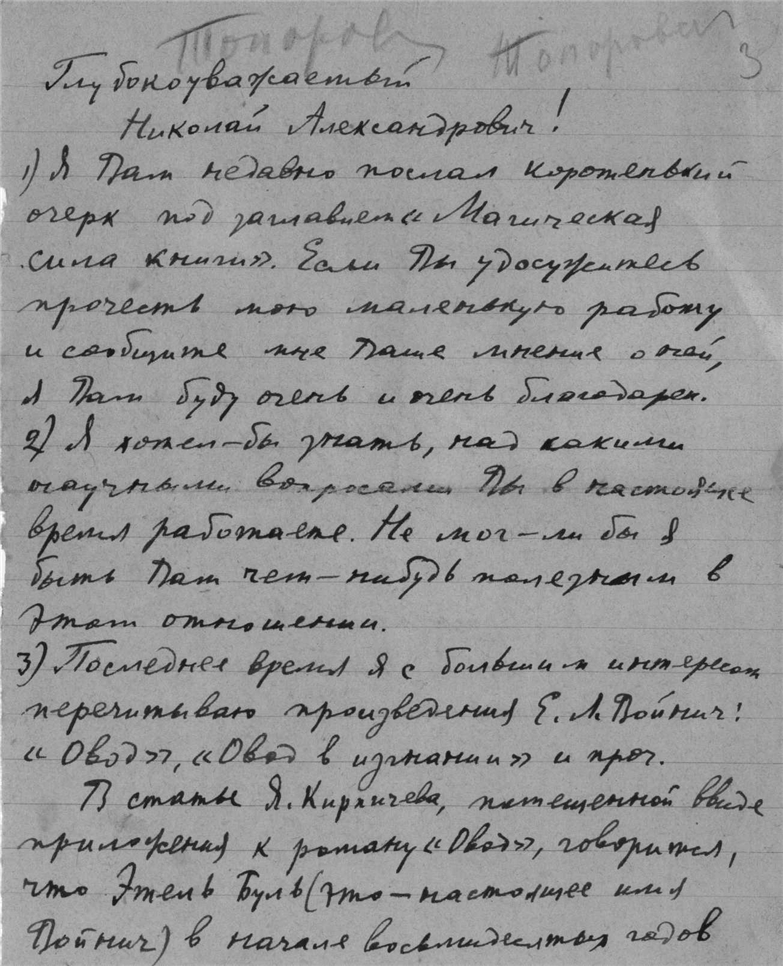 Топоров Топорович 3
Глубокоуважаемый
Николай Александрович!
1) Я Вам недавно послал коротенький
очерк под заглавием «Магическая
сила книги». Если Вы удосужитесь
прочесть мою маленькую работу
и сообщите мне Ваше мнение о ней,
я Вам буду очень и очень благодарен.
2) Я хотел-бы знать, над какими
научными вопросами Вы в настоящее
время работаете. Не мог-ли бы я
быть Вам чем-нибудь полезным в
этом отношении.
3) Последнее время я с большим интересом
перечитываю произведения Е. Л. Войнич:
«Овод», «Овод в изгнании» и проч.
В статье Я. Кирпичева, помещенной ввиде
приложения к роману «Овод», говорится,
что Этель Буль (это — настоящее имя
Войнич) в начале восьмидесятых годов